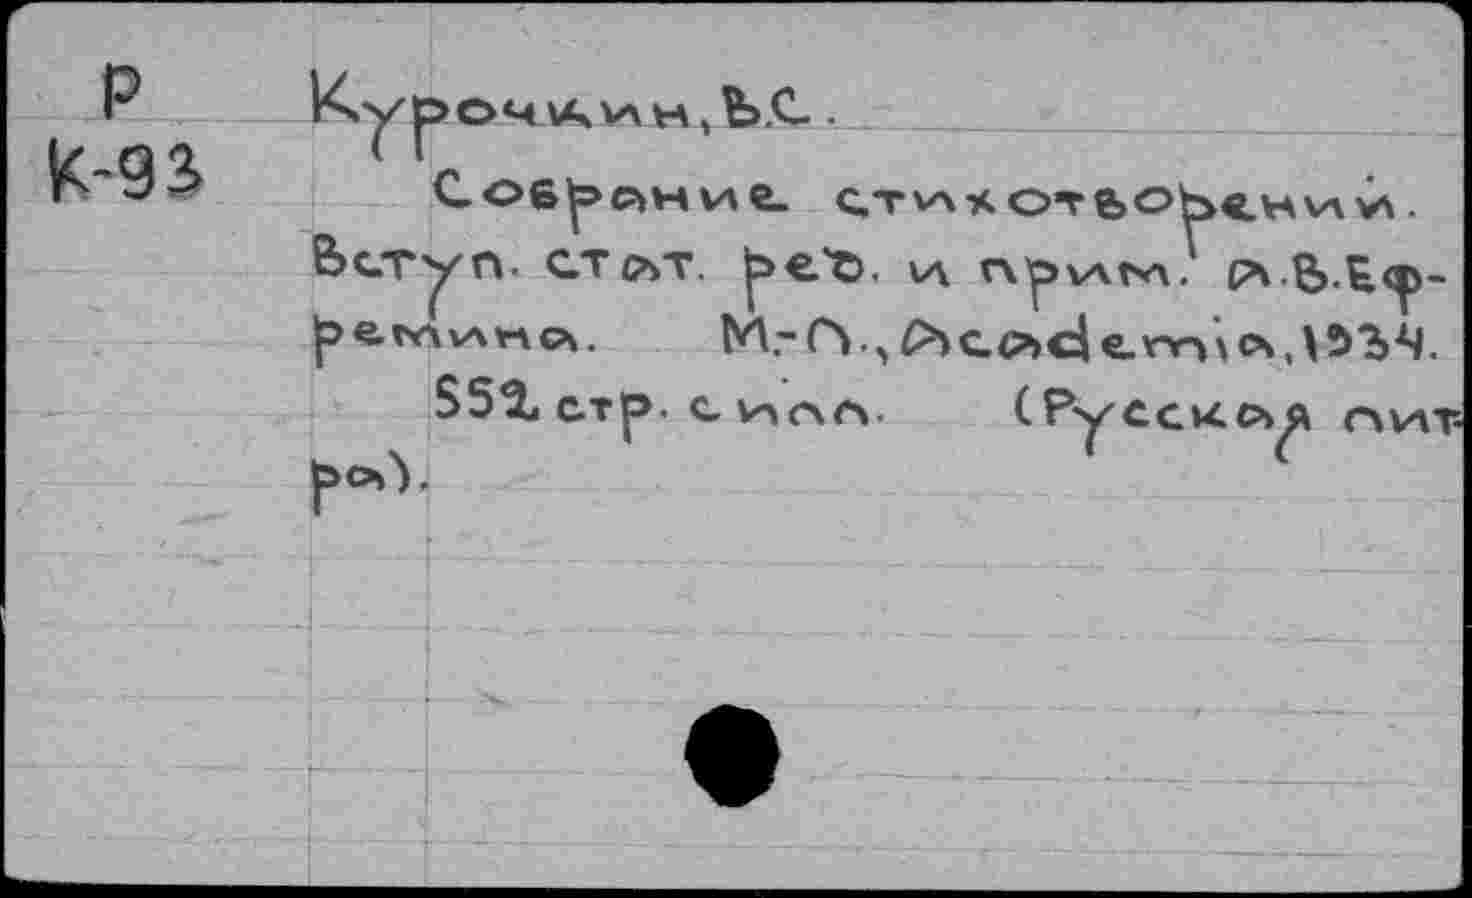 Р
К-93
Курочкин, В.С.
Собрание стихотворений.
Вступ. стат. ред. и прим. А.В.Еф-
ремина. М.-Л., Academia, 1934.
552 стр. с илл. (Русская лит-
ра).